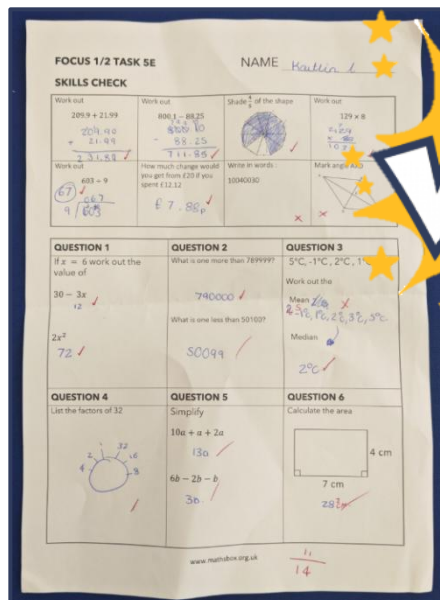 FOCUS 1/2 TASK 5E
NAME Kaitlin L
SKILLS CHECK
Work out
209.9 + 21.99
209.90
+ 21.99
231.89
Work out
800.1 − 88.25
- 88.25
711.85
Shade of the shape
Work out
129 × 8
Work out
603 ÷ 9
67
067
9 603
How much change would
you get from £20 if you
spent £12.12
£7.88p
Write in words :
10040030
Mark angle
QUESTION 1
If x = 6 work out the
value of
30 − 3x
12
2x²
72
QUESTION 2
What is one more than 789999?
790000
What is one less than 50100?
50099
QUESTION 3
5°C, -1°C, 2°C,
Work out the
Mean
-1°C, 1°C, 2°C, 3°C, 5°C
Median
2°C
QUESTION 4
List the factors of 32
1 32
2 16
4 8
QUESTION 5
Simplify
10a + a + 2a
13a
6b − 2b − b
3b
QUESTION 6
Calculate the area
4 cm
7 cm
28
www.mathsbox.org.uk
11
14